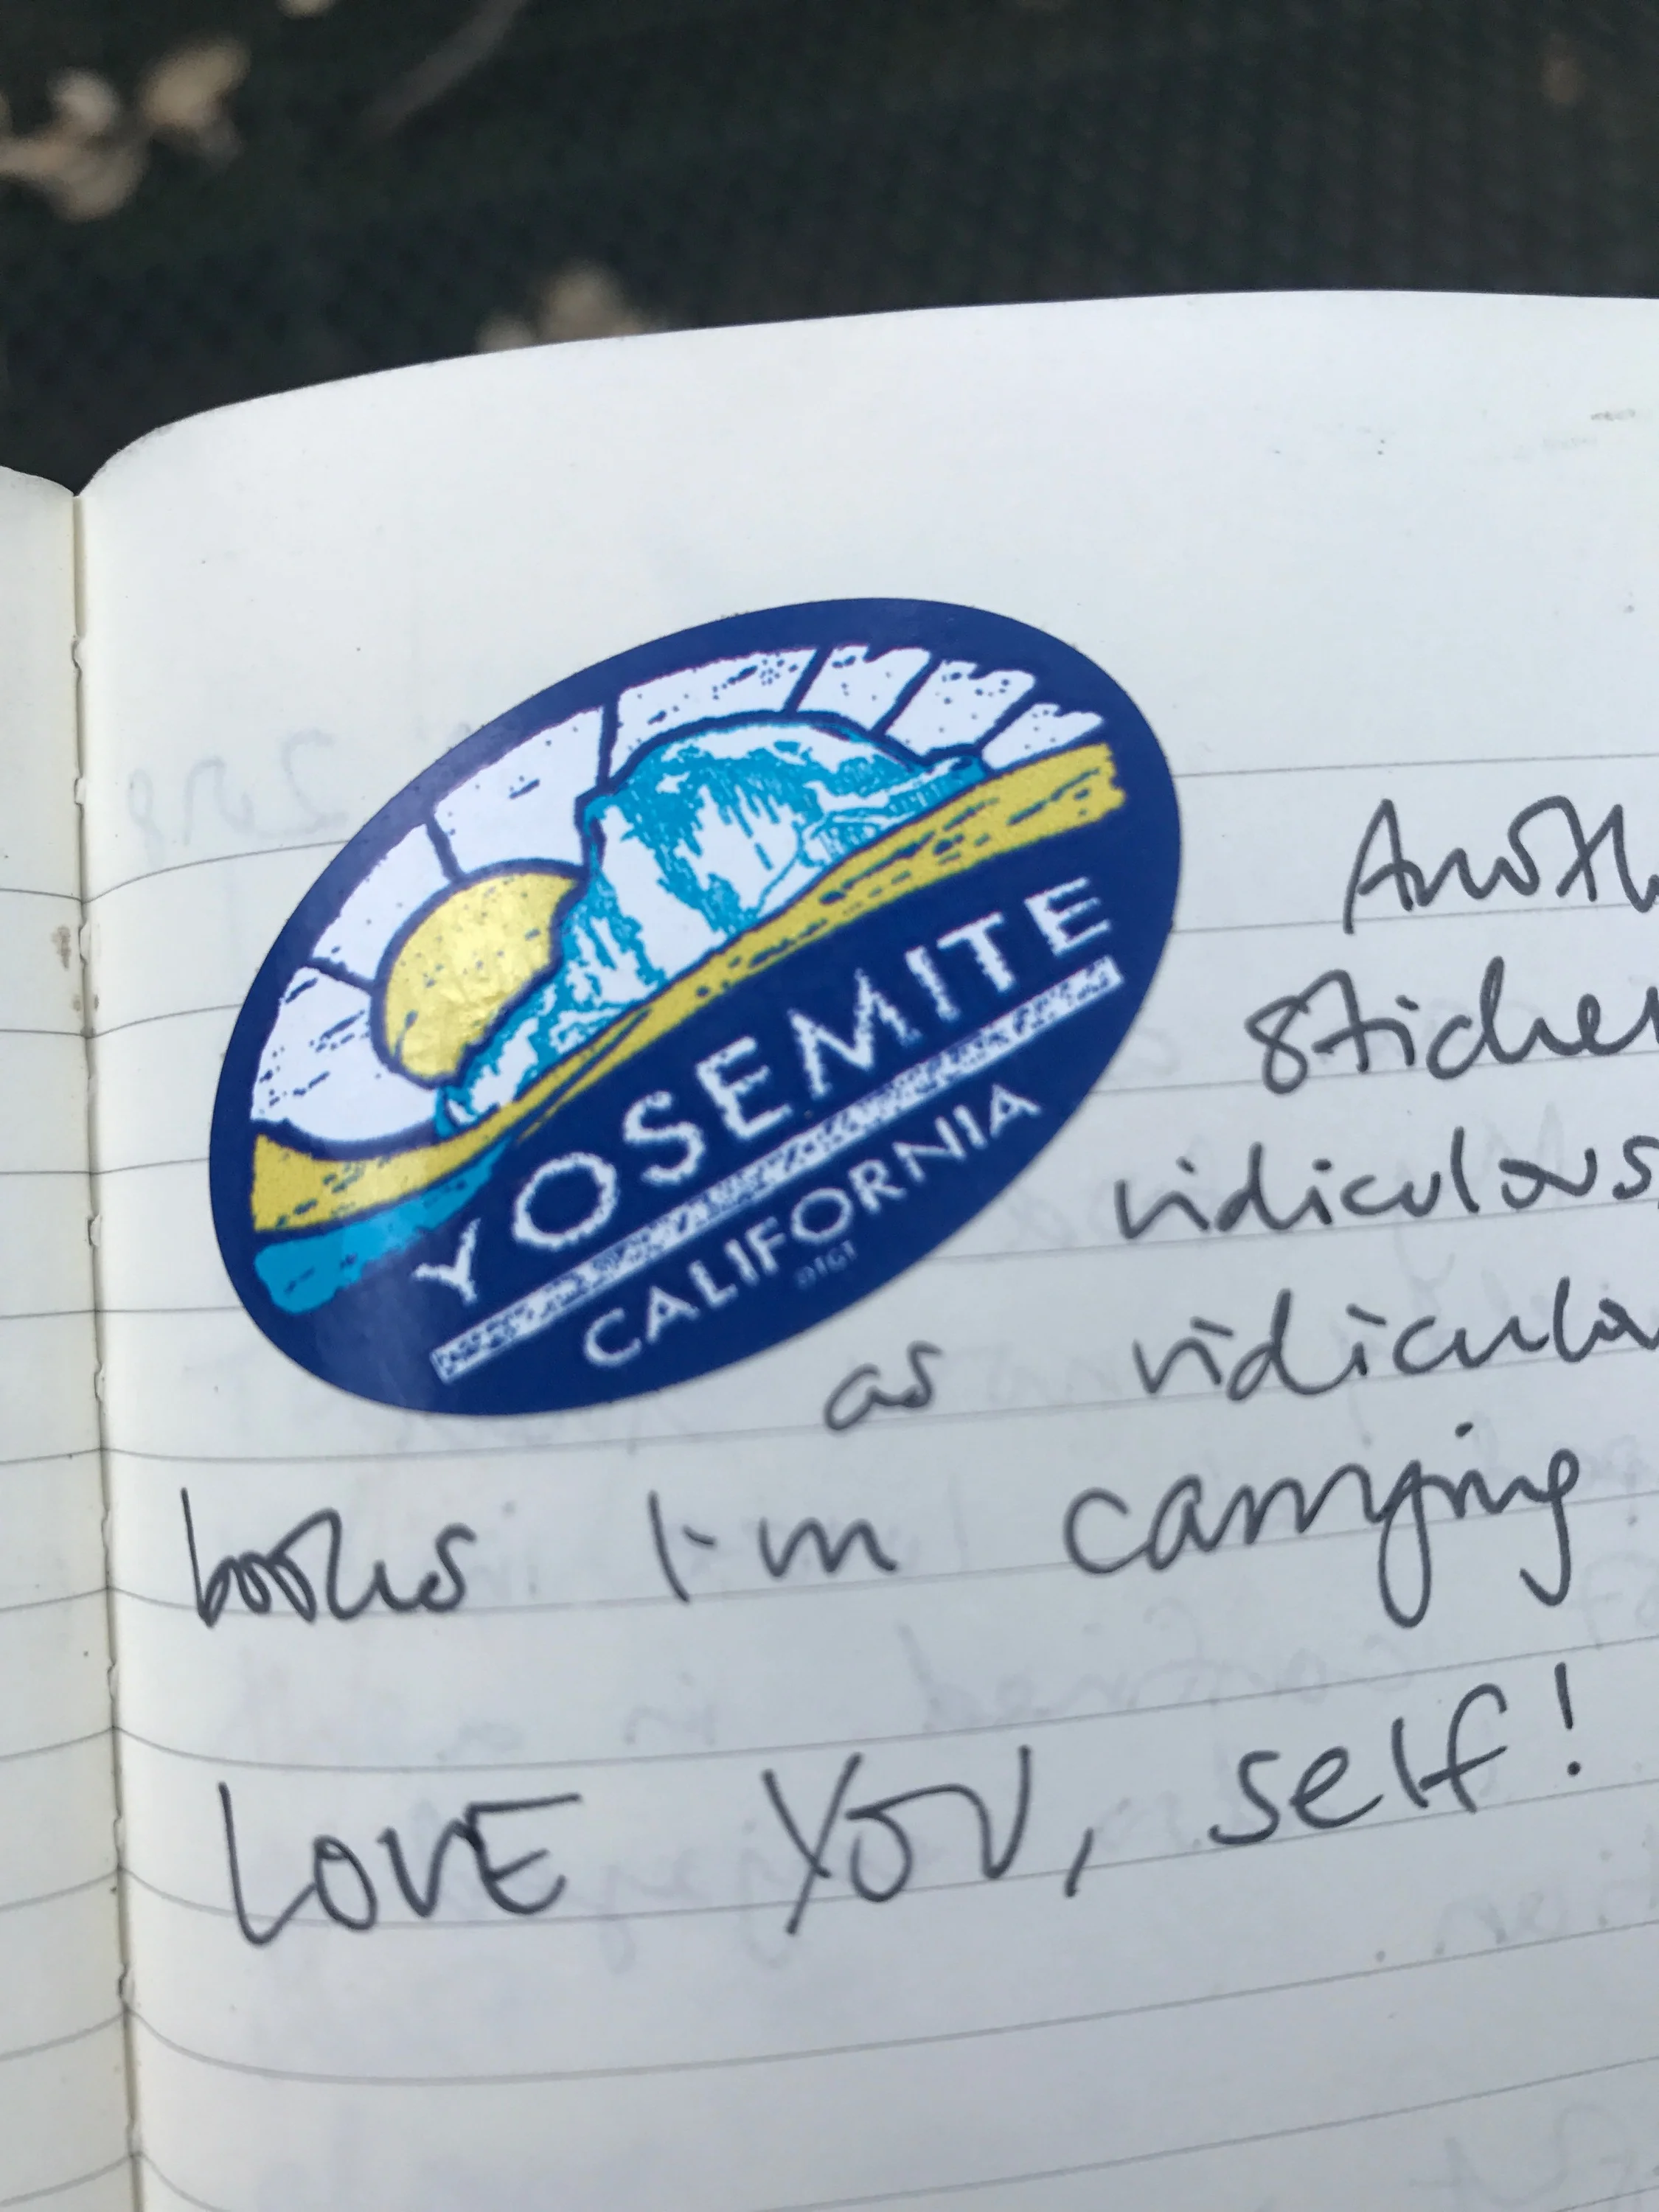 YOSEMITE
CALIFORNIA
Anoth
sticker
ridiculous,
as ridiculo
books I'm carrying
LOVE YOU, self!